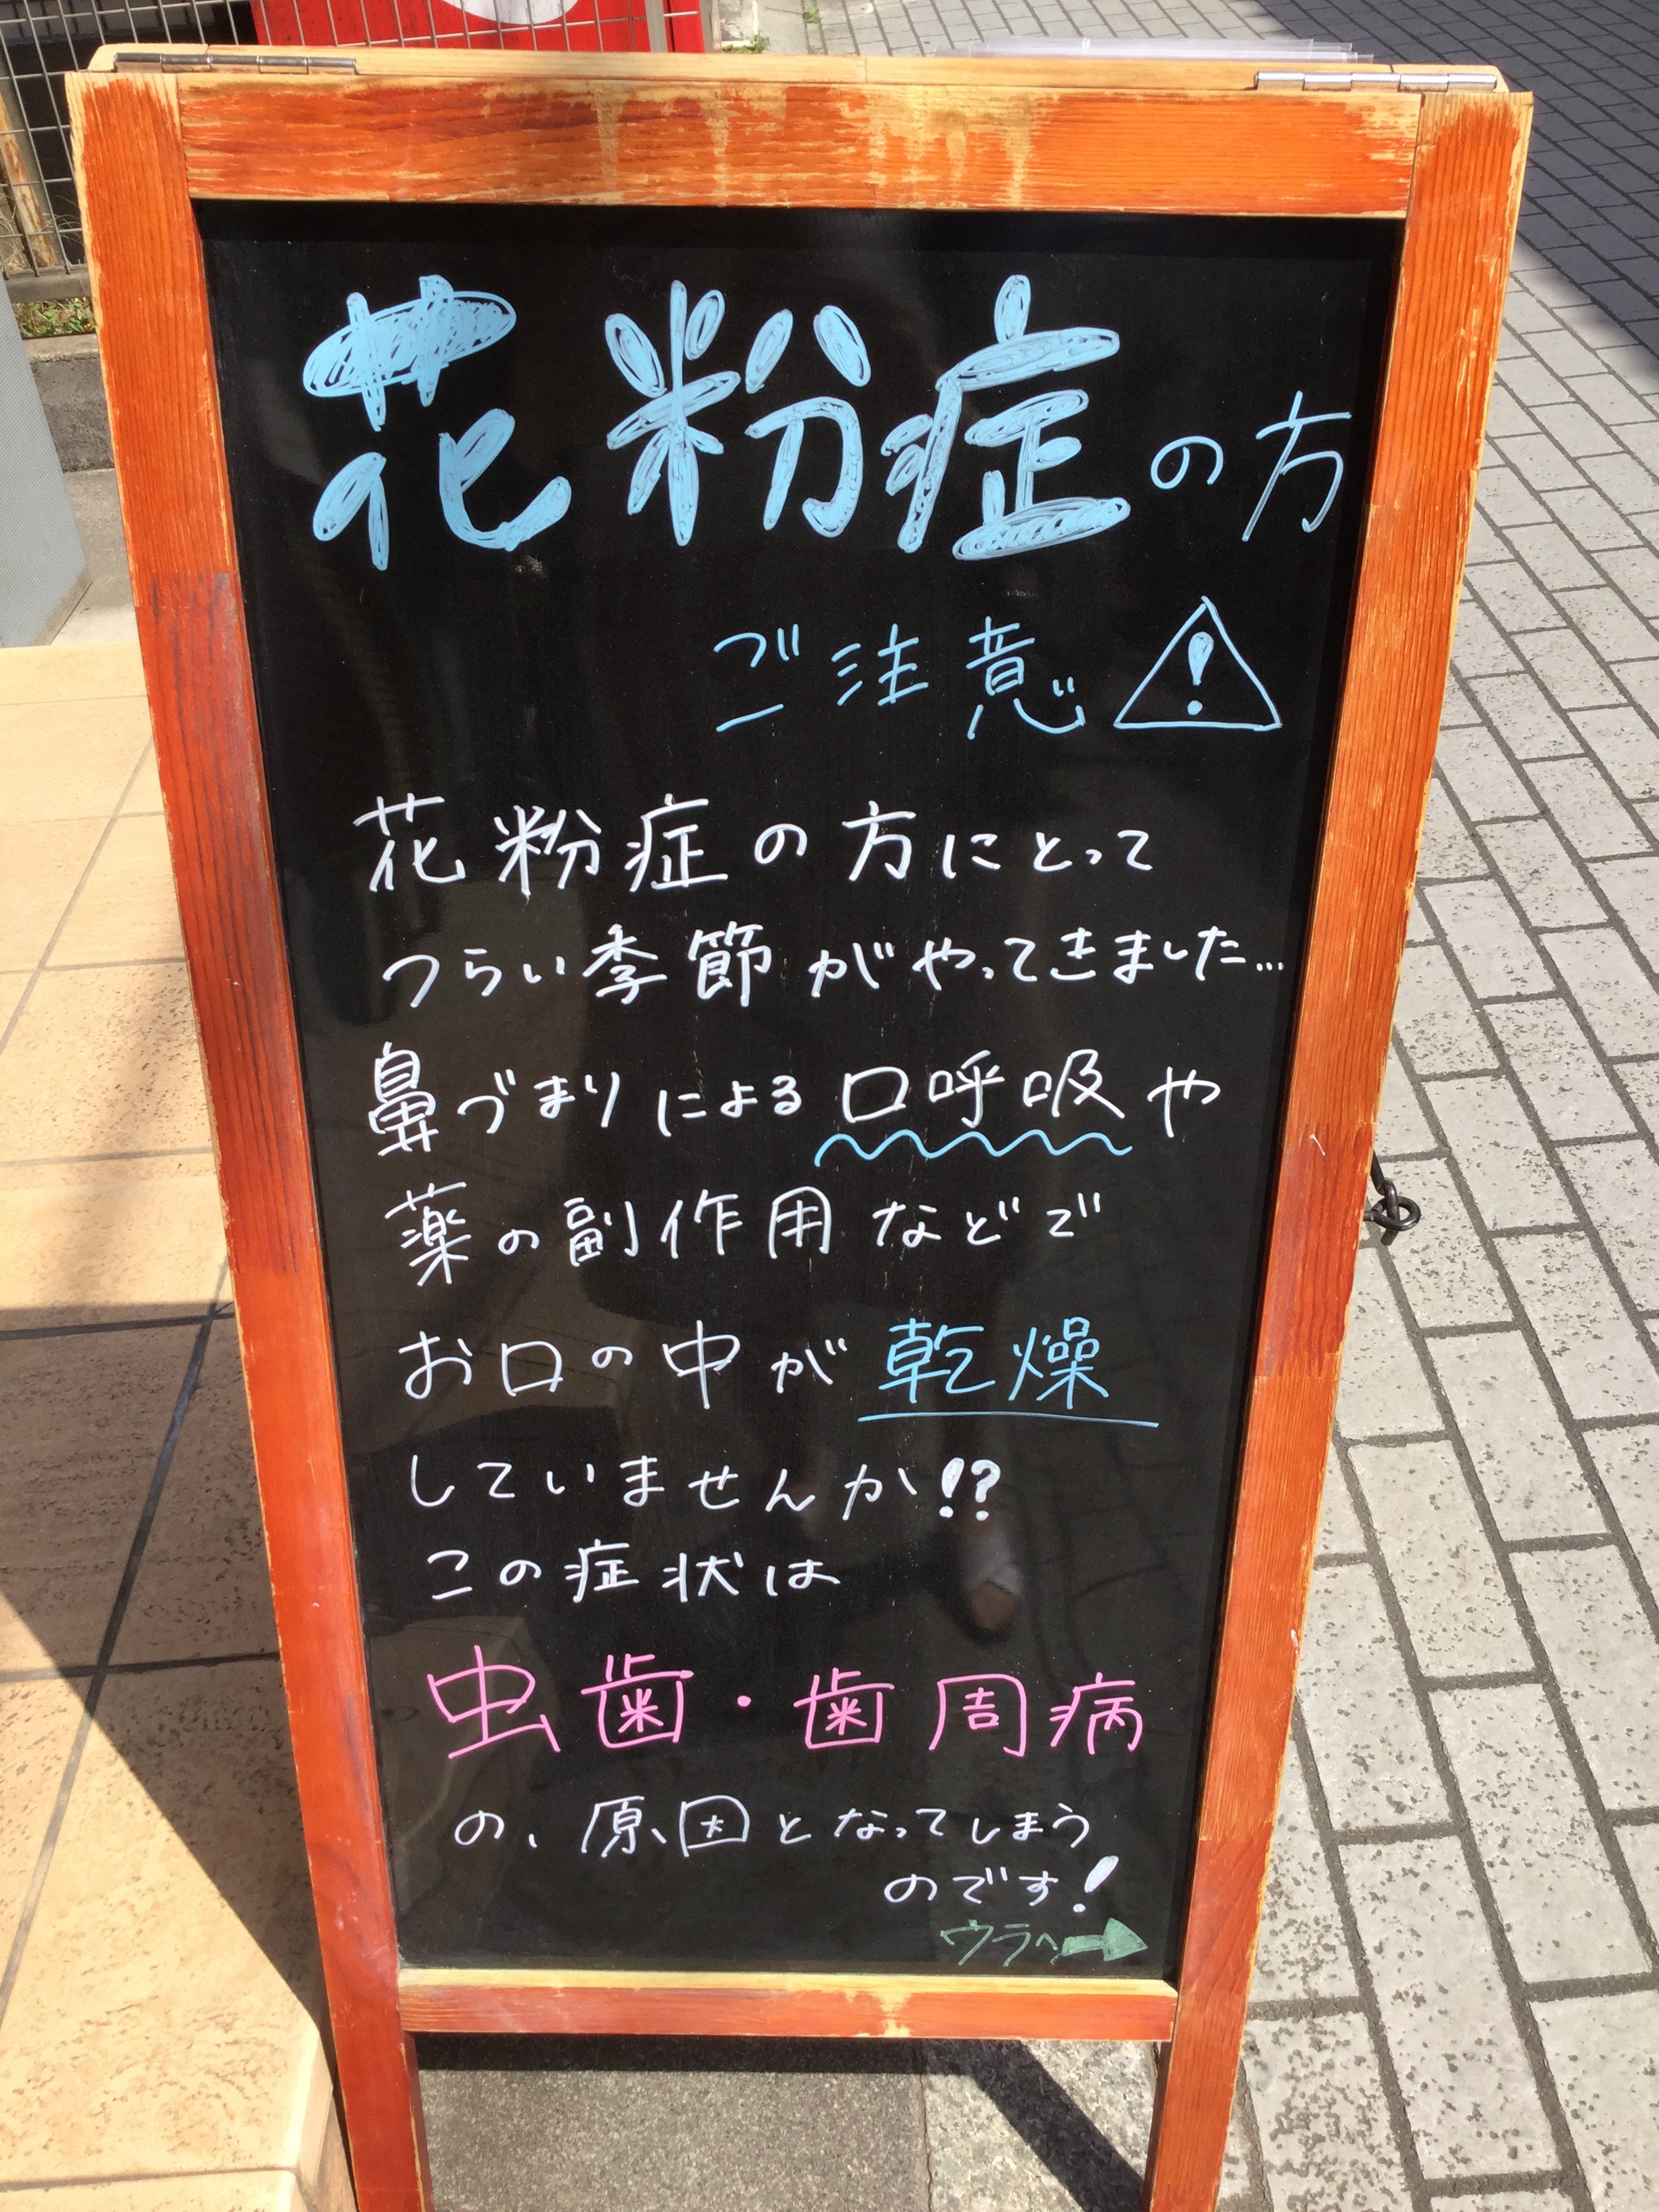 花粉症の方
ご注意!
花粉症の方にとって
つらい季節がやってきました…
鼻づまりによる口呼吸や
薬の副作用などで
お口の中が乾燥
していませんか!?
この症状は
虫歯・歯周病
の、原因となってしまう
のです!
ウラへ→